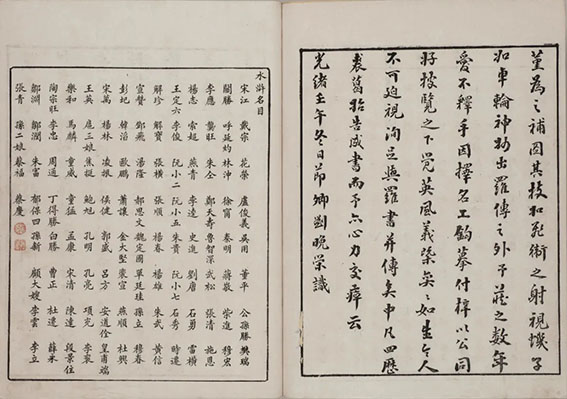 堇為之補因其技如飛衛之射視蟣子
如車輪神妙出羅傳之外予藏之數年
愛不釋手因擇名工鈎摹付梓以公同
好披覽之下覺英風義槩奕奕如生令人
不可迫視洵足與羅書并傳矣中凡四歷
裘葛始告成書而予亦心力交瘁云
光緒壬午冬日節卿劉晚榮識
水滸名目
宋江 戴宗 花榮 盧俊義 吳用 董平 公孫勝 樊瑞
關勝 呼延灼 林沖 徐甯 秦明 蔣敬 柴進 穆宏
李應 龔旺 朱仝 鄭天壽 魯智深 武松 張清 施恩
楊志 索超 燕青 李逵 史進 劉唐 石勇 雷橫
王定六 李俊 阮小二 阮小五 朱貴 阮小七 石秀 時遷
解珍 解寶 張橫 張順 楊春 楊雄 朱武 黃信
宣贊 鄧飛 湯隆 郝思文 魏定國 單廷珪 孫立 穆春
彭玘 韓滔 歐鵬 蕭讓 金大堅 裴宣 燕順 杜興
宋萬 楊林 凌振 侯健 郭盛 呂方 安道全 皇甫端
王英 扈三娘 焦挺 鮑旭 孔明 孔亮 項充 李袞
樂和 馬麟 童威 童猛 孟康 宋清 陳達 段景住
陶宗旺 李忠 周通 丁得勝 白勝 曹正 杜遷 薛永
鄒淵 鄒潤 朱富 郁保四 孫新 顧大嫂 李雲 李立
張青 孫二娘 蔡福 蔡慶